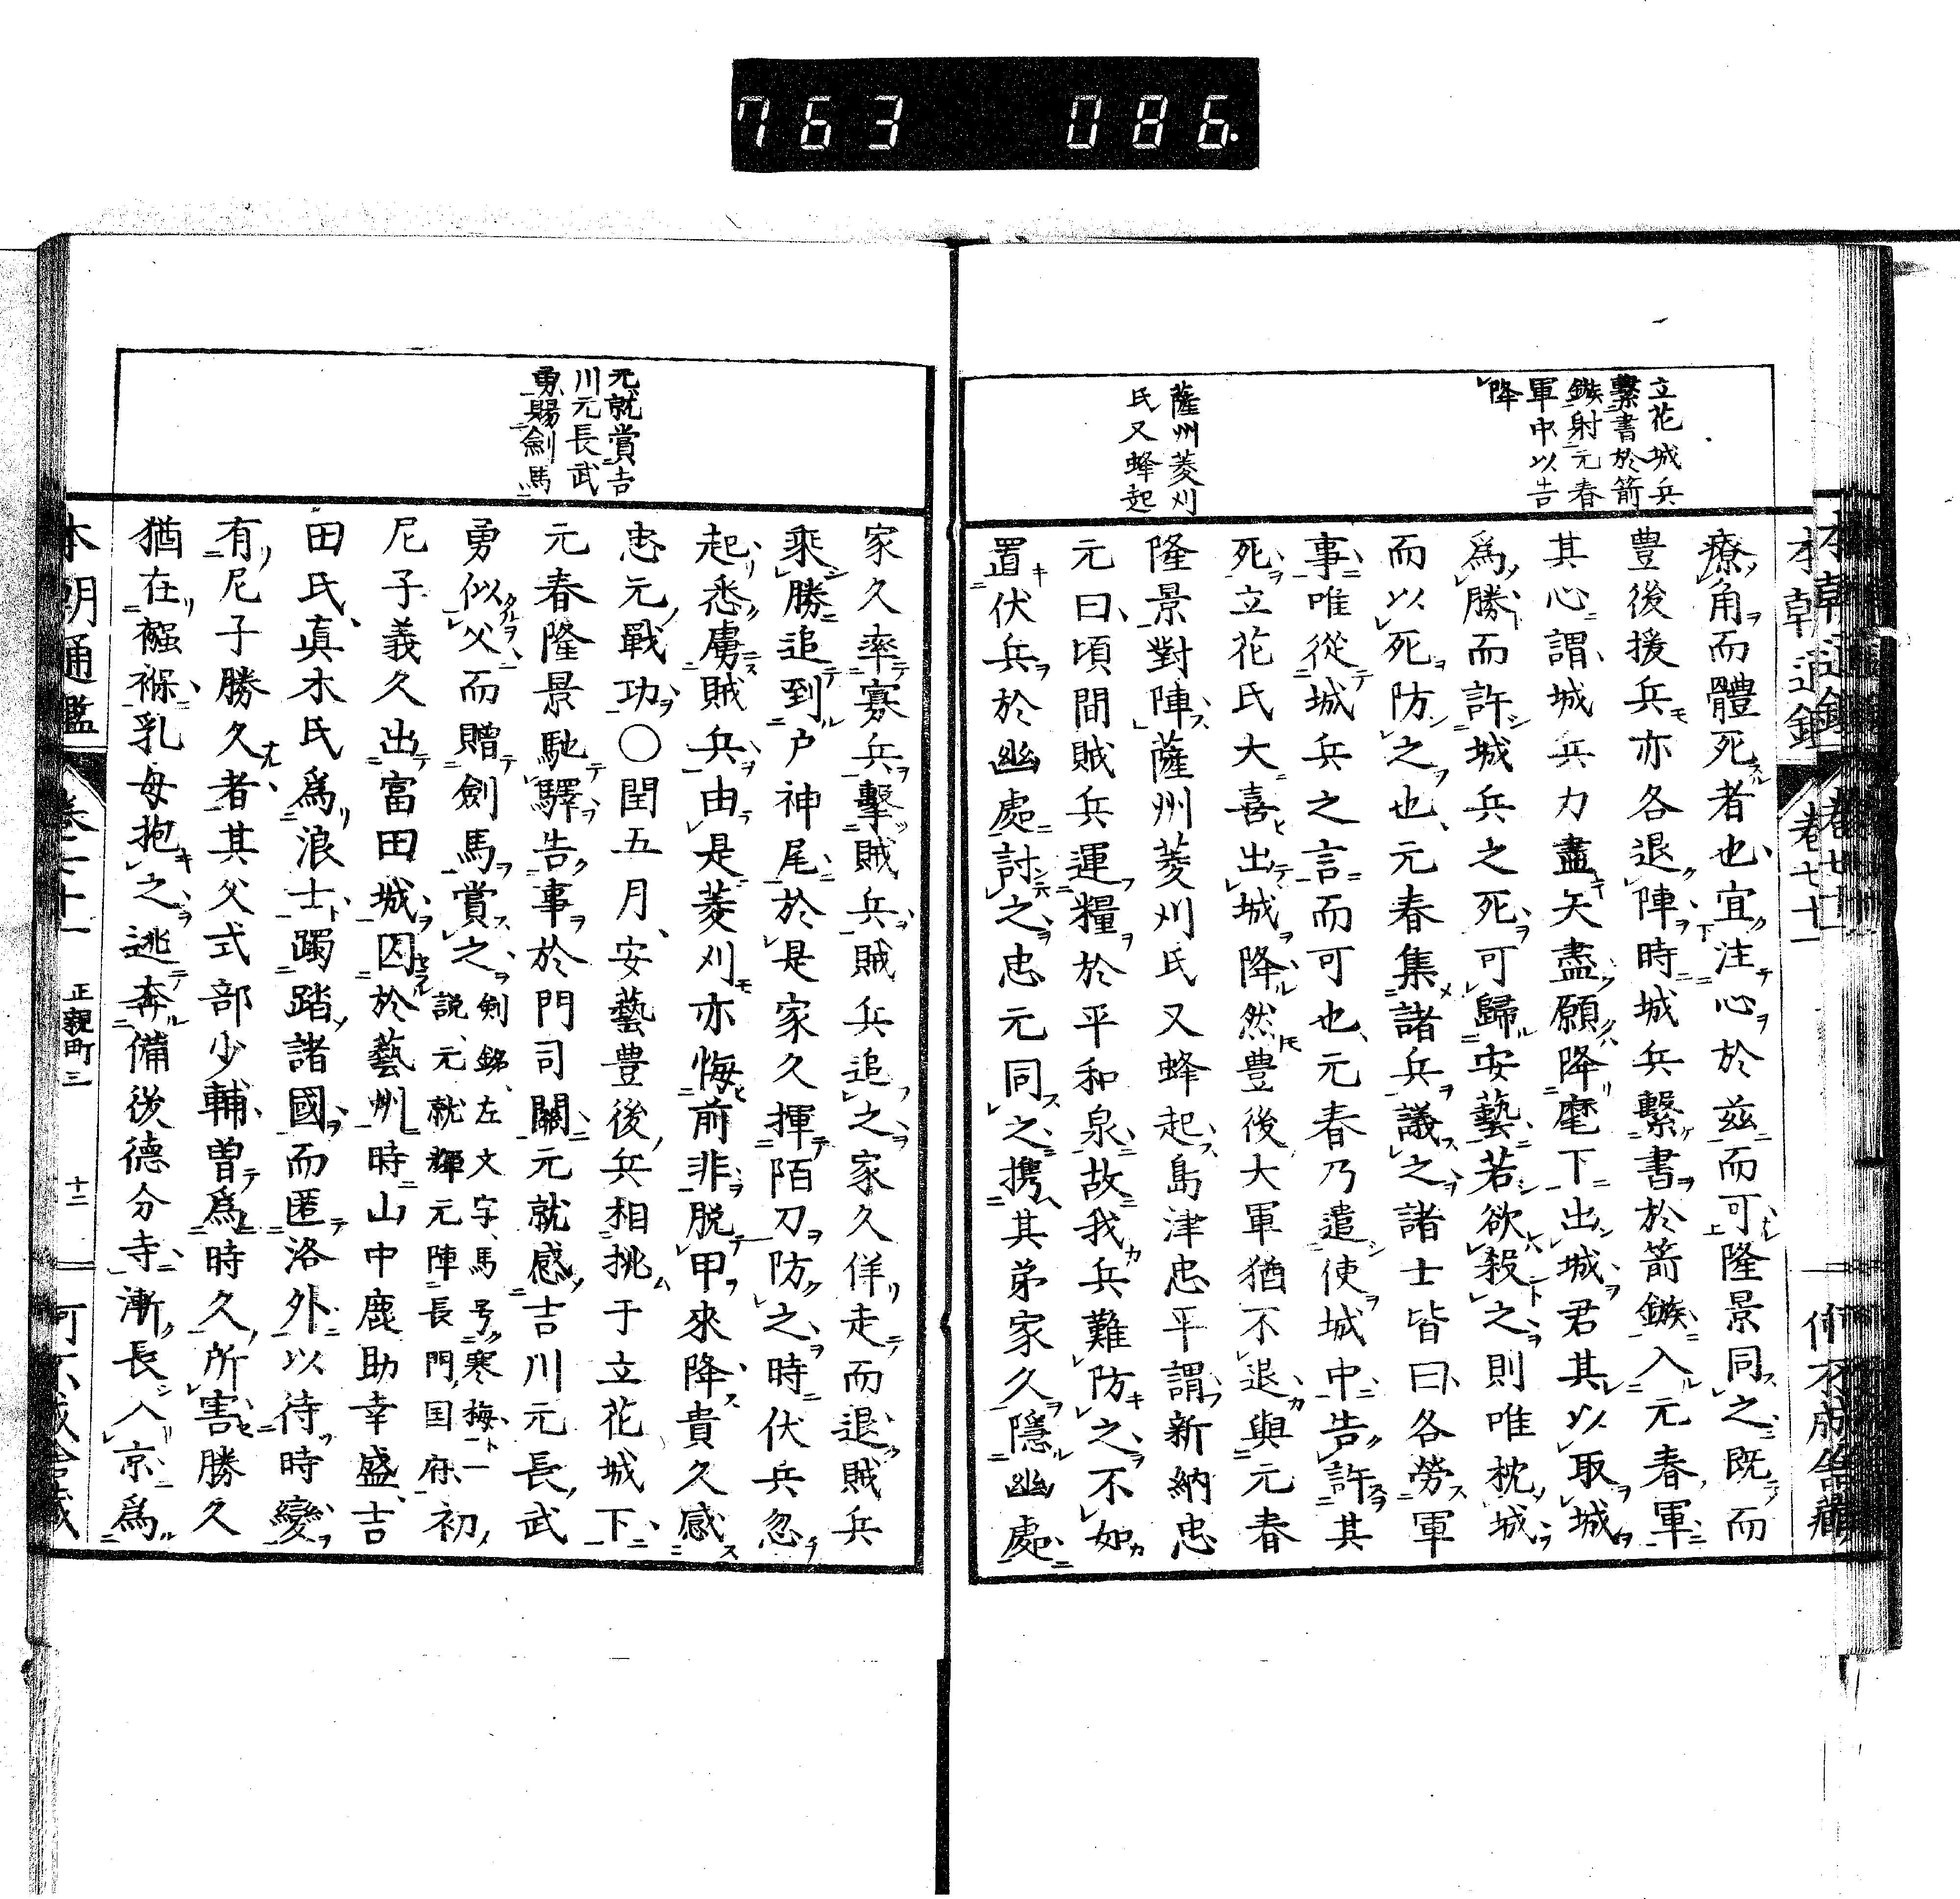 763 086.
立花城兵
繫書於箭
鏃射元春
軍中以告
降
薩州菱刈
氏又蜂起
本朝通鑑 卷七十一
療角而體死者也宜注心於茲而可隆景同之既而
豊後援兵亦各退陣時城兵繫書於箭鏃入元春軍
其心謂城兵力盡矢盡願降麾下出城君其以取城
爲勝而許城兵之死可歸安藝若欲殺之則唯枕城
而以死防之也元春集諸兵議之諸士皆曰各勞軍
事唯從城兵之言而可也元春乃遣使城中告許其
死立花氏大喜出城降然豊後大軍猶不退與元春
隆景對陣薩州菱刈氏又蜂起島津忠平謂新納忠
元曰頃間賊兵運糧於平和泉故我兵難防之不如
置伏兵於幽處討之忠元同之携其弟家久隱幽處
元就賞吉
川元長武
勇賜劍馬
家久率寡兵擊賊兵賊兵追之家久佯走而退賊兵
乘勝追到戸神尾於是家久揮陌刀防之時伏兵忽
起悉虜賊兵由是菱刈亦悔前非脱甲來降貴久感
忠元戰功〇閏五月安藝豊後兵相挑于立花城下
元春隆景馳驛告事於門司關元就感吉川元長武
勇似父而贈劍馬賞之
剣銘左文字馬号寒梅一
説元就輝元陣長門国府
初
尼子義久出富田城囚於藝州時山中鹿助幸盛吉
田氏真木氏爲浪士躅踏諸國而匿洛外以待時變
有尼子勝久者其父式部少輔曽爲時久所害勝久
猶在襁褓乳母抱之逃奔備後德分寺漸長入京爲
本朝通鑑 卷七十一 正親町三 十二